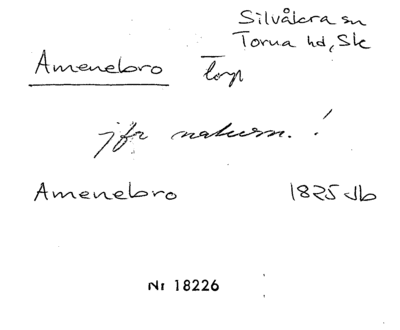 Silvåkra sn
Torna hd, Sk
Amenebro torp
jfr naturn. !
Amenebro 1825 Jb
Nr 18226